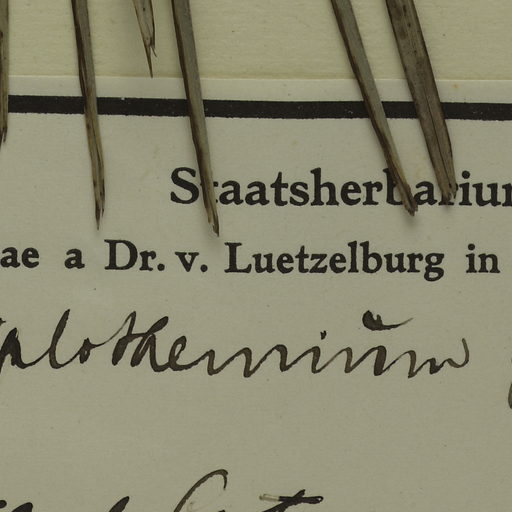 Staatsherbarium
ae a Dr. v. Luetzelburg in
plothemium